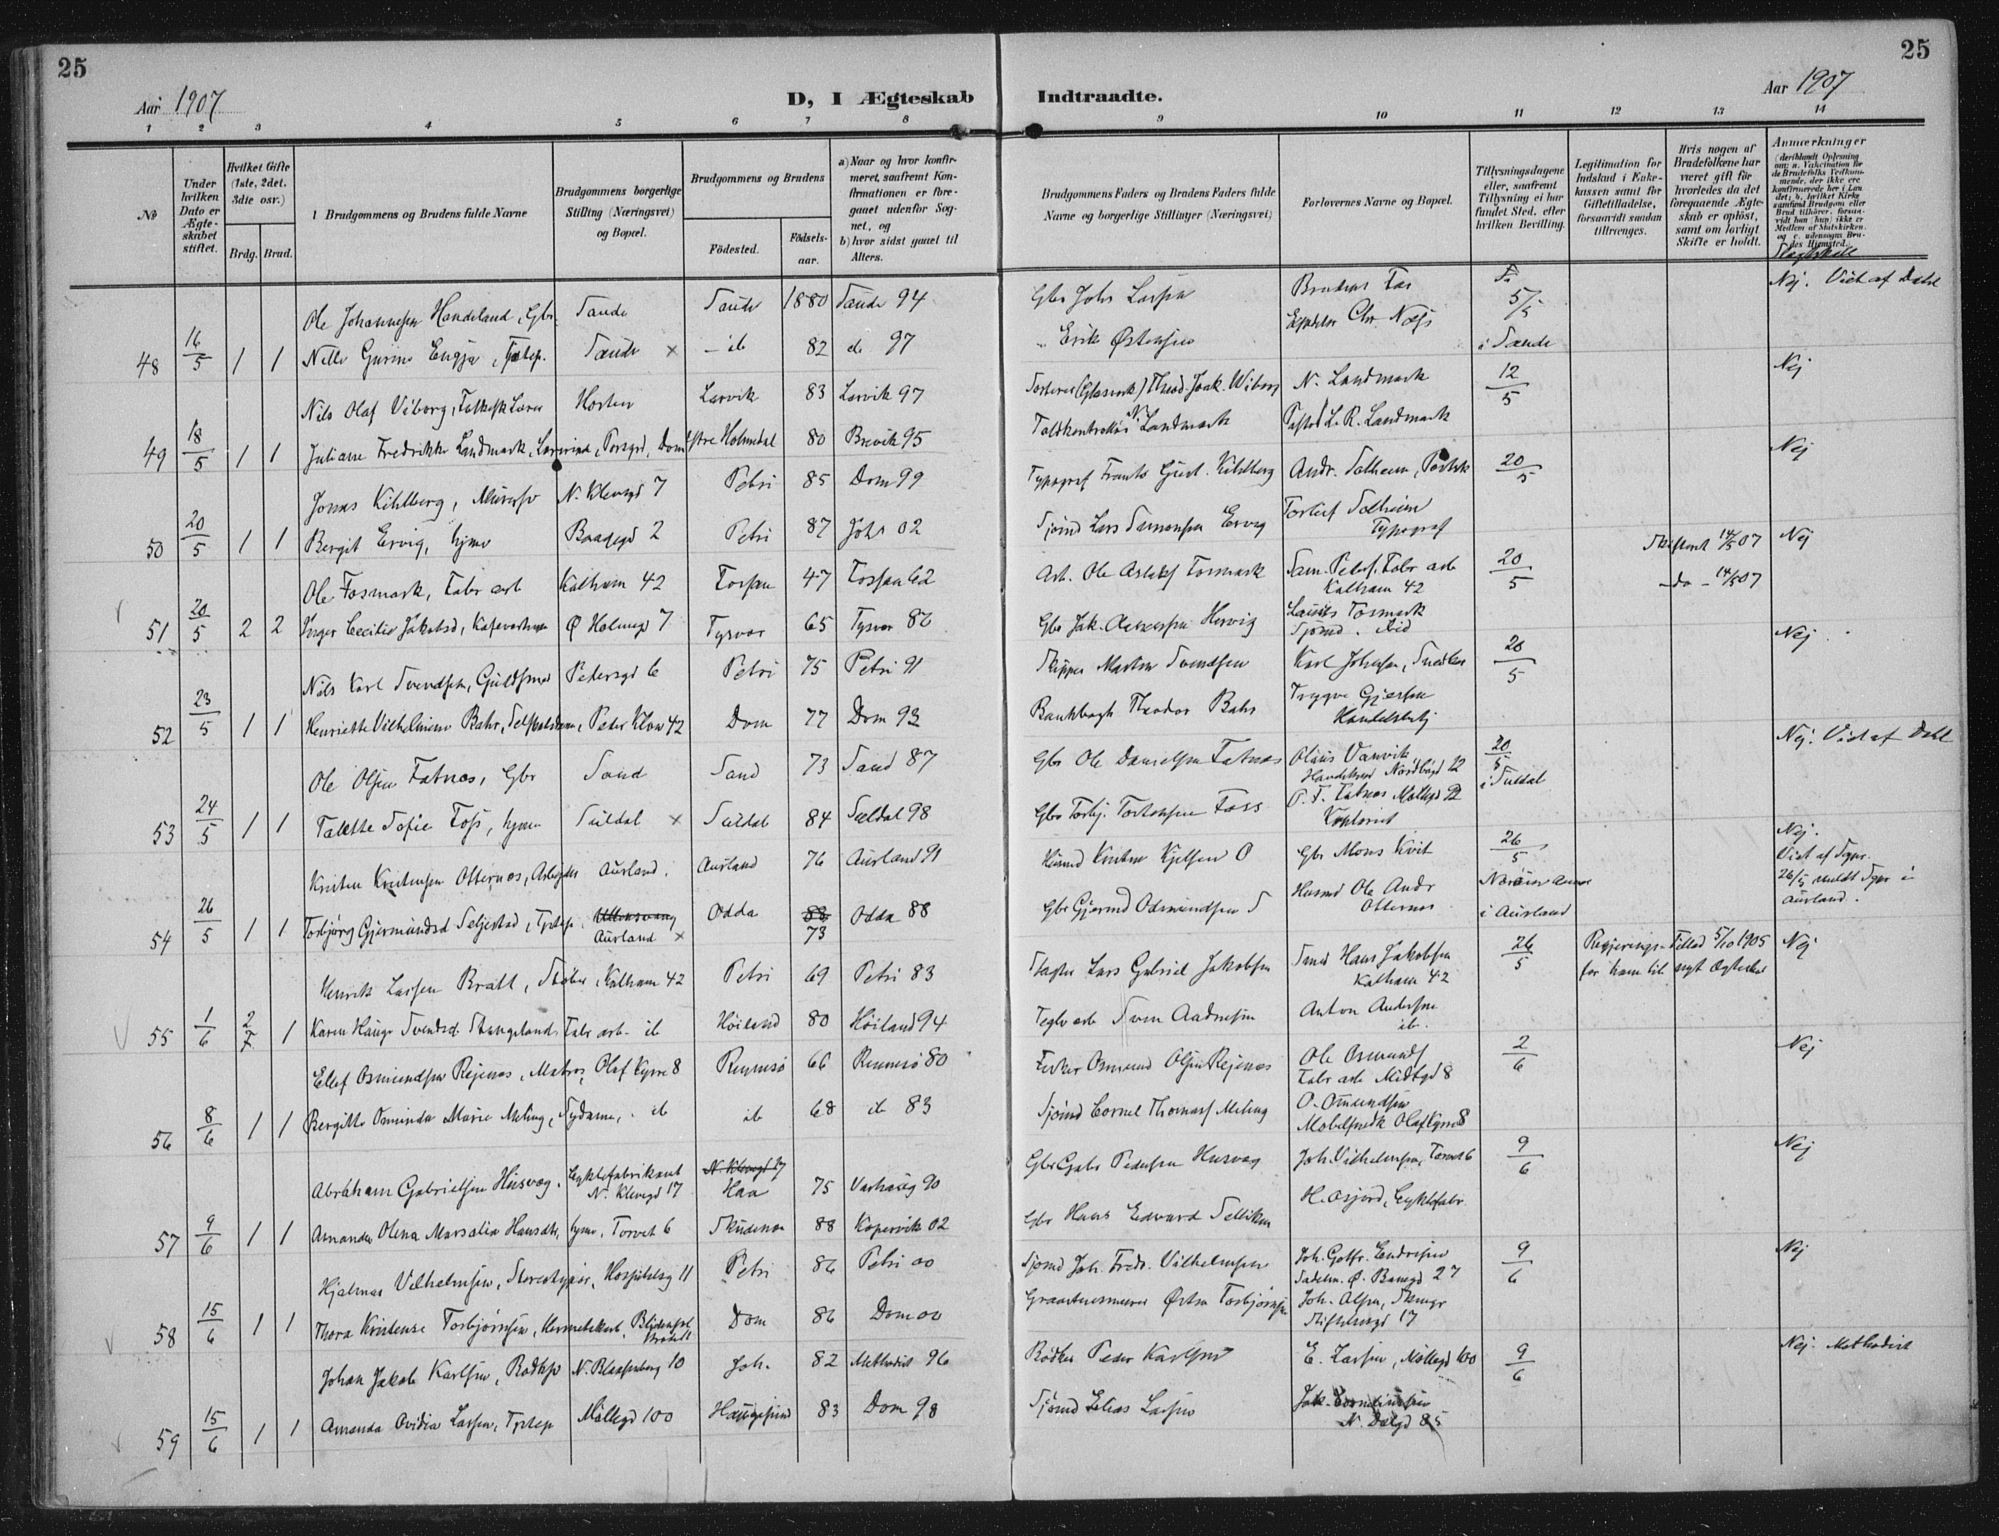 25
Aar 1907
D, I Ægteskab
Indtraadte.
Aar 1907
25
1 2 3 4 5 6 7 8 9 10 11 12 13 14
No
Under hvilken Dato er Ægteskabet stiftet.
Hvilket Gifte (1ste, 2det, 3die osv.)
Brdg. Brud.
Brudgommens og Brudens fulde Navne
Brudgommens borgerlige Stilling (Næringsvei) og Bopæl.
Brudgommens og Brudens
Fødested.
Fødselsaar.
a) Naar og hvor konfirmeret, saafremt Konfirmationen er foregaaet udenfor Sognet, og
b) hvor sidst gaaet til Alters.
Brudgommens Faders og Brudens Faders fulde Navne og borgerlige Stillinger (Næringsvei)
Forlovernes Navne og Bopæl.
Tillysningsdagene eller, saafremt Tillysning ei har fundet Sted, efter hvilken Bevilling.
Legitimation for Indskud i Enkekassen samt for Giftetilladelse, forsaavidt saadan tiltrænges.
Hvis nogen af Brudefolkene har været gift før hvorledes da det foregaaende Ægteskab er opløst, samt om lovligt Skifte er holdt.
Anmærkninger
Ole Johannesen Handeland, Gbr. Sande Sande 1880 Sande 94 Gbr Johs Larsen Brudens Far 5/5 Nej. Viet af Dahl
48 16/5 1 1 Nelle Gurine Engja, Tjtep. Sande × - ib 82 ib 97 " Erik Østensen Chr. Næss i Sande
Nils Olaf Viborg, Horten Larvik 83 Larvik 97 Theod. Joak. Wiborg N. Landmark 12/5 Nej
49 18/5 1 1 Juliane Fredrikke Landmark, Lærerinde, Porsgrd, Dom Holmedal 80 Brevik 95 Toldkontrollør N. Landmark Pastor L. R. Landmark
Jonas Kihlberg, Murersv N. Klevegd 7 Petri 85 Dom 99 Typograf Frants Gust. Kihlberg Andr. Solheim, 20/5 Nej
50 20/5 1 1 Bergit Ervig, hjme 2 Petri 87 Johs 02 Sjømd Lars Ervig Torleif Solheim Typograf
Ole Fosmark, Fabr arb Kalham 42 Fossan 47 Fossan 62 Arb. Ole Fosmark Kalham 42 20/5 Skifteatt 14/5 07 Nej
51 20/5 2 2 Inger Cecilie Jakobsd, Ø Holmegd 7 Tysvær 65 Tysvær 82 Gbr Jak. Hervig Fosmark Sjømd. ibid - do - 14/5 07
Nils Karl Svendsen, Guldsmed Petersgd 6 Petri 75 Petri 91 Skipper Martin Svendsen Karl Johnsen, Snedker 20/5 Nej
52 23/5 1 1 Henriette Vilhelmine Bahr, Peder Klow 42 Dom 77 Dom 93 Theodor Bahr Trygve Gjersen Handelsbetj
Ole Olsen Fatnes, Gbr Sand Sand 73 Sand 87 Gbr Ole Danielsen Fatnæs Olaus Vanvik 12 20/5 Nej. Viet af Dahl
53 24/5 1 1 Talette Sofie Foss, hjme Suldal × Suldal 84 Suldal 98 Gbr Torbj. Torkelsen Foss O. F. Fatnæs Møllegd 92 i Suldal
Kontorist
Kristen Kristensen Otternes, Arbeider Aurland. Aurland 76 Aurland 91 Husmd Kristen Kjelsen O Gbr Mons Kvit 26/5 Nej. Viet af Spr. 26/5 meldt Spr i Aurland.
54 26/5 1 1 Torbjørg Gjermundsd Seljestad, Tjtep. Ullensvang Aurland × Odda 88 73 Odda 88 Gbr Gjermd Odmundsen S Husmd Ole Andr Otternes i Aurland
Henrik Larsen Bratt, Støber, Kalham 42 Petri 69 Petri 83 Slagter Lars Gabriel Jakobsen Hans Jakobsen Kalham 42 26/5 Regjerings-Tillad 5/10 1905 for ham til nyt Ægteskab Nej
55 1/6 2 F 1 Karen Hauge Svendsd. Stangeland Fabr arb - ib Høiland 80 Høiland 94 Teglv arb Sven Aadnesen Anton Andersen ib.
Ellef Osmundsen Rejenes, Matros, Olaf Kyrre 8 Rennesø 66 Rennesø 80 Fisker Osmund Olsen Rejenæs Ole Osmunds Fabr arb Midtgd 8 2/6 Nej
56 8/6 1 1 Bergitte Osminda Marie Meling, Sydame, ib ib 68 ib 83 Sjømd Cornel Thomass Meling O. Osmundsen Møbelsnedk Olaf Kyrre 8
Abraham Gabrielsen Husvæg, Cyklefabrikant N. Klevegd 17 N. Klevegd 17 Haa 75 Varhaug 90 Gbr Gabr Pedersen Husvæg Joh. Vilhelmsen, Torvet 6 9/6 Nej
57 9/6 1 1 Amanda Olena Marsalia Hansdtr, hjme, Torvet 6 Skudenes 88 Kopervik 02 Gbr Hans Edvard Sellikm H. Osjord, Cyklefabr.
Hjalmar Vilhelmsen, Stereotypør, Hospitalsg 11 Petri 86 Petri 00 Sjømd Joh. Fredr. Vilhelmsen Joh. Gotfr. Endresen Sadelm. Ø. Banegd 27 9/6 Nej
58 15/6 1 1 Thora Kristense Torbjørnsen, Hermetikarb, Blidensol Dom 86 Dom 00 Østen Torbjørnsen Joh. Olsen, 17
Johan Jakob Karlsen, Bødker N. Blaasenberg 10 Joh. 82 Methodist 96 Bødker Peder Karlsen E. Larsen, Møllegd 100 9/6 Nej. Methodist
59 15/6 1 1 Amanda Ovidia Larsen, Tjtep Møllegd 100 Haugesund 83 Dom 98 Sjømd Elias Larsen Jak. Corneliussen N. Dalgd 85